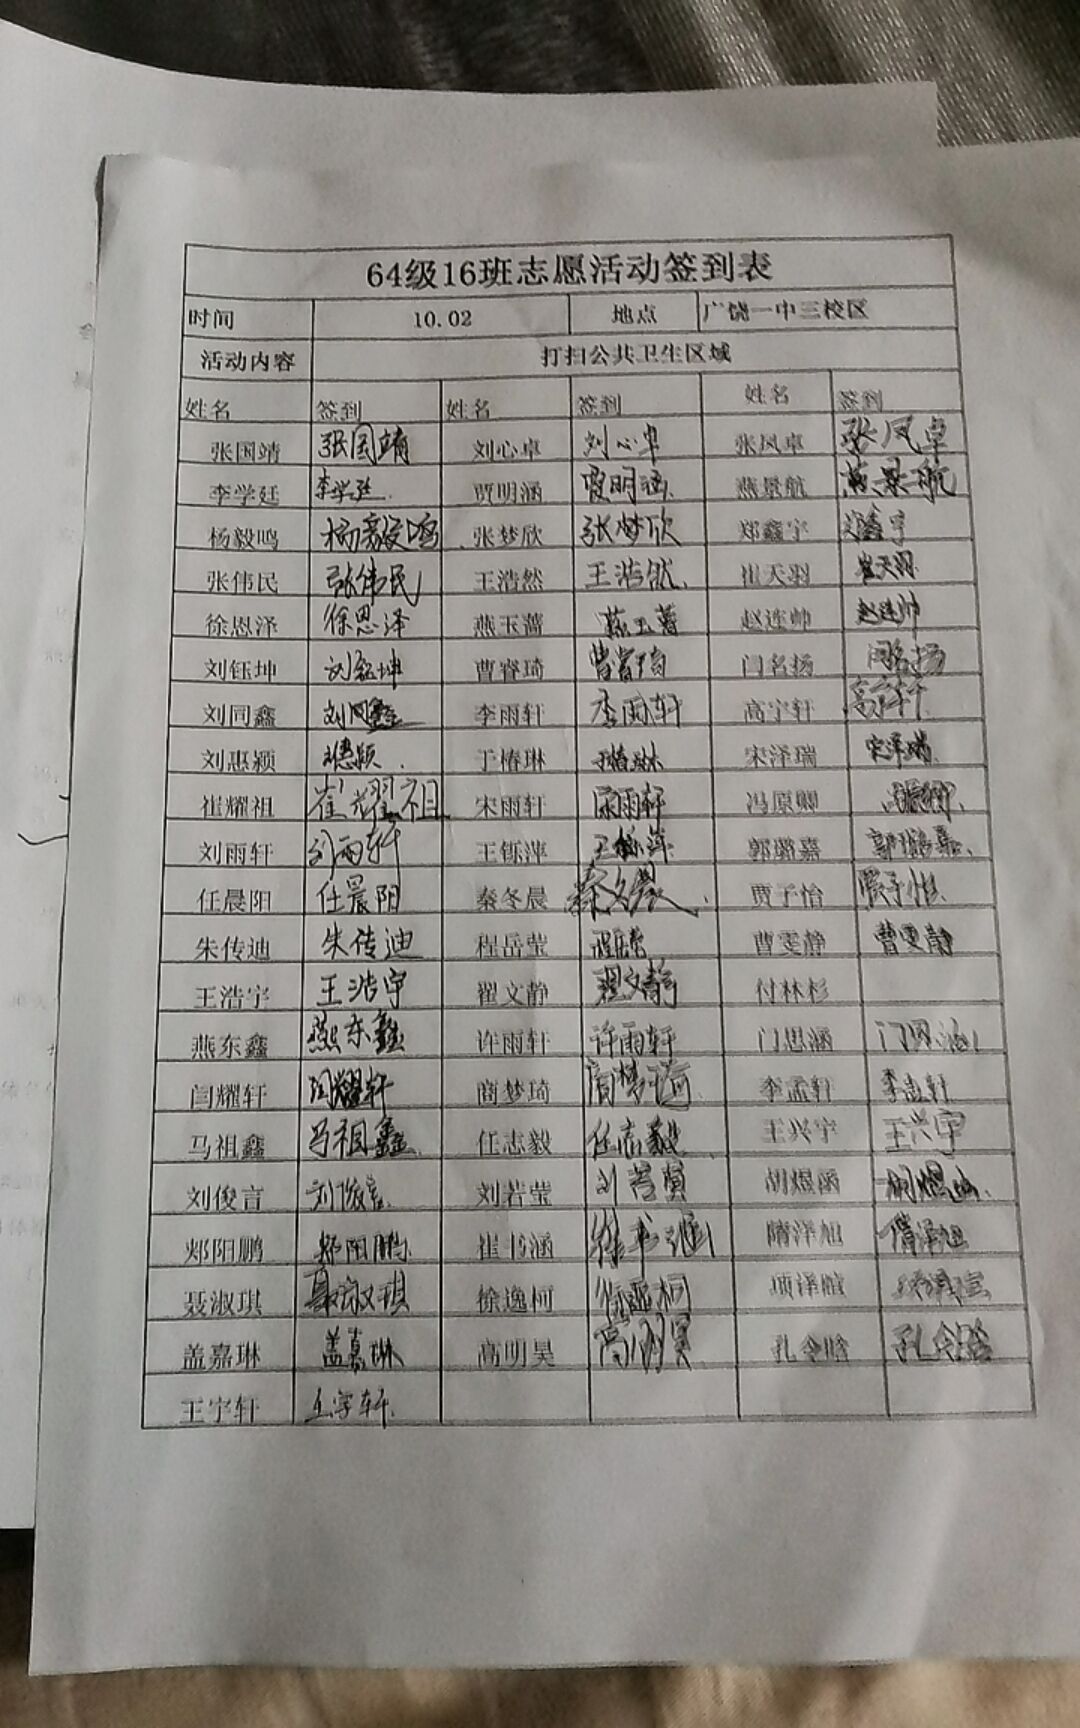 64级16班志愿活动签到表
时间 10.02 地点 广饶一中三校区
活动内容 打扫公共卫生区域
姓名 签到 姓名 签到 姓名 签到
张国靖 张国靖 刘心卓 刘心卓 张凤卓 张凤卓
李学廷 李学廷 贾明涵 贾明涵 燕景航 燕景航
杨毅鸣 杨毅鸣 张梦欣 张梦欣 郑鑫宇 郑鑫宇
张伟民 张伟民 王浩然 王浩然 崔天羽 崔天羽
徐恩泽 徐恩泽 燕玉蔷 燕玉蔷 赵连帅 赵连帅
刘钰坤 刘钰坤 曹睿琦 曹睿琦 门名扬 门名扬
刘同鑫 刘同鑫 李雨轩 李雨轩 高宇轩 高宇轩
刘惠颖 刘惠颖 于椿琳 于椿琳 宋泽瑞 宋泽瑞
崔耀祖 崔耀祖 宋雨轩 宋雨轩 冯原卿 冯原卿
刘雨轩 刘雨轩 王铄萍 王铄萍 郭璐嘉 郭璐嘉
任晨阳 任晨阳 秦冬晨 秦文晨 贾子怡 贾子怡
朱传迪 朱传迪 程岳莹 程岳莹 曹雯静 曹雯静
王浩宇 王浩宇 翟文静 翟文静 付林杉
燕东鑫 燕东鑫 许雨轩 许雨轩 门思涵 门思涵
闫耀轩 闫耀轩 商梦琦 商梦琦 李孟轩 李孟轩
马祖鑫 马祖鑫 任志毅 任志毅 王兴宇 王兴宇
刘俊言 刘俊言 刘若莹 刘若莹 胡煜函
郏阳鹏 郏阳鹏 崔书涵 崔书涵 隋泽旭 隋泽旭
聂淑琪 聂淑琪 徐逸柯 徐逸柯 项泽暄
盖嘉琳 盖嘉琳 高明昊 高明昊 孔令晗 孔令晗
王宇轩 王宇轩